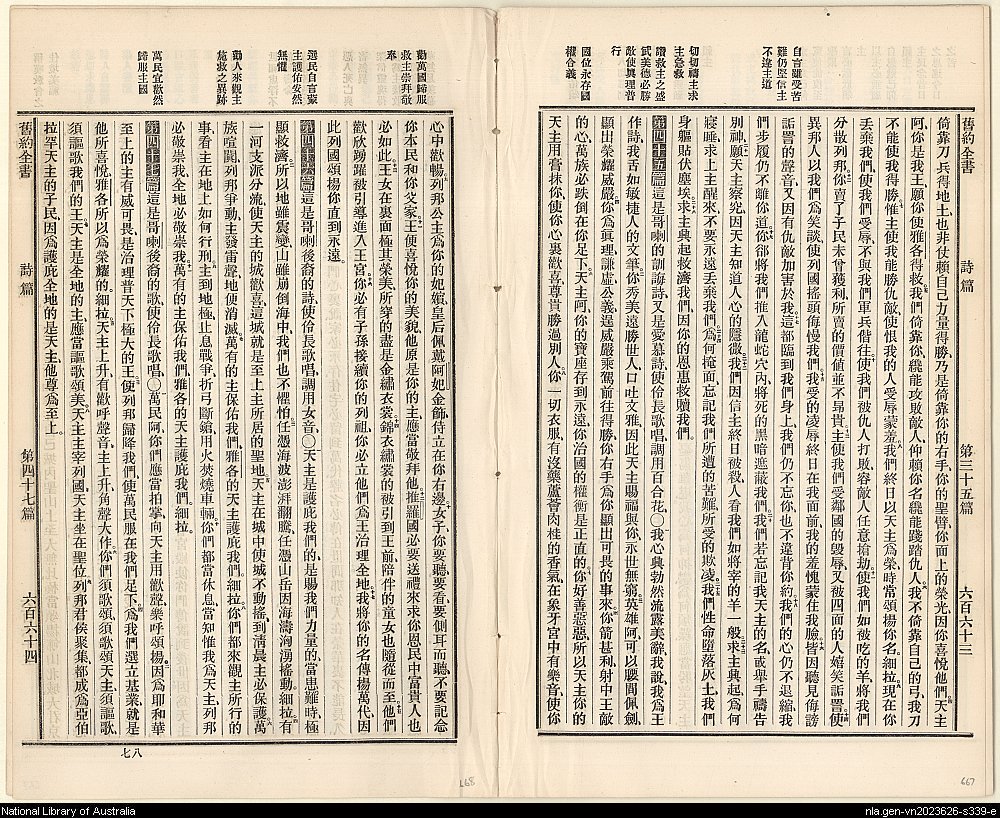 舊約全書
詩篇
第三十五篇
六百六十三
自言雖受苦
難仍堅信主
不違主道
切切禱主求
主急救
讚救主之盛
武美德必勝
敵使興理普
行
國位永存國
權合義
倚靠刀兵得地土也非仗賴自己力量得勝乃是倚靠你的右手你的聖臂你面上的榮光因你喜悅他們天主
阿你是我王願你使雅各得救我們倚靠你纔能攻敗敵人仰賴你名纔能踐踏仇人我不倚靠自己的弓我刀
不能使我得勝惟主使我能勝仇敵使恨我的人受辱蒙羞我們終日以天主爲榮時常頌揚你名細拉現在你
丟棄我們使我們受辱不與我們軍兵偕往使我們被仇人打敗容敵人任意搶刼使我們如被吃的羊將我們
分散列邦你賣了子民未曾獲利所賣的價值並不昂貴主使我們受鄰國的毀辱又被四面的人嬉笑詬詈使
異邦人以我們爲笑談使列國搖頭侮慢我們我受的凌辱終日在我面前我的羞愧蒙住我臉皆因聽見侮謗
詬詈的聲音又因有仇敵加害於我這都臨到我們身上我們仍不忘你也不違背你約我們的心仍不退縮我
們步履仍不離你道你郤將我們推入龍蛇穴內將死的黑暗遮蔽我們我們若忘記我天主的名或舉手禱告
別神願天主察究因天主知道人心的隱微我們因信主終日被殺人看我們如將宰的羊一般求主興起爲何
寢睡求上主醒來不要永遠丟棄我們爲何掩面忘記我們所遭的苦難所受的欺凌我們性命墮落灰土我們
身軀貼伏塵埃求主興起梭濟我們因你的恩惠救贖我們
第四十五篇這是哥喇的訓誨詩又是愛慕詩使伶長歌唱調用百合花〇我心興勃然流露美辭我說我爲王
作詩我舌如敏捷人的文筆你秀美遠勝世人口吐文雅因此天主賜福與你永世無窮英雄阿可以腰間佩劍
顯出榮耀威嚴你爲眞理謙虛公義逞威嚴乘駕前往得勝你右手爲你顯出可畏的事來你箭甚利射中王敵
的心萬族必跌倒在你足下天主阿你的寶座存到永遠你治國的權衡是正直的你好善惡惡所以天主你的
天主用膏抹你使你心裏歡喜尊貴勝過別人你一切衣服有沒藥蘆薈肉桂的香氣在象牙宮中有樂音使你
667
勸萬國歸服
救主崇拜敬
奉
選民自言蒙
主護佑安然
無懼
勸人來觀主
施救之異跡
萬民宜歡然
歸服主國
心中歡暢列邦公主爲你的妃嬪皇后佩戴阿妃金飾侍立在你右邊女子你要聽要看要側耳而聽不要記念
你本民和你父家王便喜悅你的美貌他原是你的主應當敬拜他推羅國必要送禮來求你恩民中富貴人也
必如此王女在裏面極其榮美所穿的盡是金繡衣裳錦衣繡裳的被引到王前陪伴的童女也隨從而至他們
歡欣踴躍被引導進入王宮你必有子孫接續你的列祖你必立他們爲王治理全地我將你的名傳揚萬代因
此列國頌揚你直到永遠
第四十六篇這是哥喇後裔的詩使伶長歌唱調用女音〇天主是護庇我們的是賜我們力量的當患難時極
顯救濟所以地雖震變山雖崩倒海中我們也不懼怕任憑海波澎湃翻騰任憑山岳因海濤洶湧搖動細拉有
一河支派分流使天主的城歡喜這城就是至上主所居的聖地天主在城中使城不動搖到淸晨主必保護萬
族喧鬨列邦爭動主發雷聲地便消滅萬有的主保佑我們雅各的天主護庇我們細拉你們都來觀主所行的
事看主在地上如何行刑主到地極止息戰爭折弓斷鎗用火焚燒車輛你們都當休息當知惟我爲天主列邦
必敬崇我全地必敬崇我萬有的主保佑我們雅各的天主護庇我們細拉
第四十七篇這是哥喇後裔的歌使伶長歌唱〇萬民阿你們應當拍掌向天主用歡聲樂呼頌揚因爲耶和華
至上的主有威可畏是治理普天下極大的王使列邦歸降我們使萬民服在我們足下爲我們選立基業就是
他所喜悅雅各所以爲榮耀的細拉天主上升有歡呼聲音主上升角聲大作你們須歌頌須歌頌天主須謳歌
須謳歌我們的王天主是全地的主應當謳歌頌美天主主宰列國天主坐在聖位列邦君侯聚集都成爲亞伯
拉罕天主的子民因爲護庇全地的是天主他尊爲至上
舊約全書
詩篇
第四十七篇
六百六十四
七八
668
National Library of Australia
nla.gen-vn2023626-s339-e